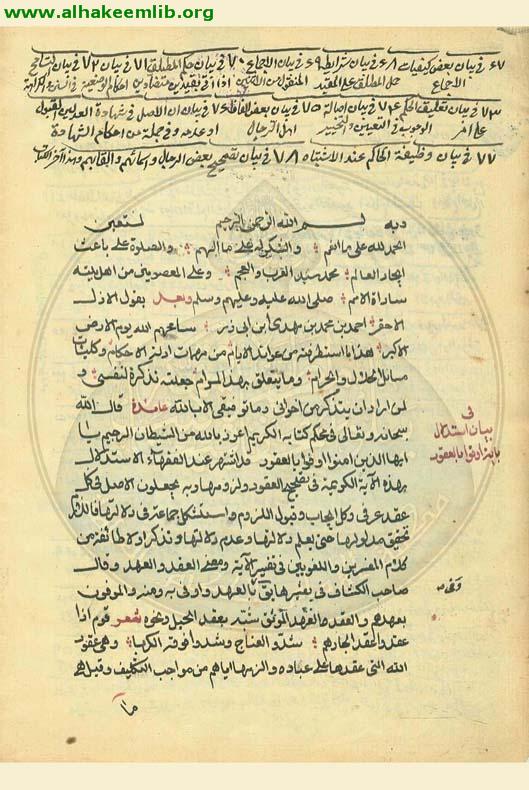 www.alhakeemlib.org
٦٧ في بيان بعض كيفيات الاجماع ٦٨ في بيان شرايط ٦٩ في بيان الاجماع ٧٠ في بيان حكم المطلق ٧١ في بيان ٧٢ في بيان
حمل المطلق على المقيد
٧٣ في بيان تعليق الحكم على امر ٧٤ في بيان اصالة ٧٥ في بيان بعض الفاظ ٧٦ في بيان ان الاصل في شهادة العدلين القبول
الوجوب في التعيين والتخيير اهل الرجال او عدمه وفي جملة من احكام الشهادة
٧٧ في بيان وظيفة الحاكم عند الاشتباه ٧٨ في بيان تصحيح بعض الرجال واسمائهم والقابهم وهذا آخر الكتاب
وبه بسم الله الرحمن الرحيم نستعين
الحمد لله على ما انعم والشكر له على ما الهم والصلوة على باعث
ايجاد العالم محمد سيد العرب والعجم وعلى المعصومين من اهل بيته
سادات الامم صلى الله عليه وعليهم وسلم وبعد يقول الاذل
الاحقر احمد بن محمد مهدي ابن ابي ذر سامحهم الله يوم الارض
الاكبر هذا ما استطرفته من عوائد الايام من مهمات ادلة الاحكام وكليات
مسائل الحلال والحرام وما يتعلق بهذا المرام جعلته تذكرة لنفسي و
لمن اراد ان يتذكر من اخواني وما توفيقي الا بالله عائدة قال الله
سبحانه وتعالى في محكم كتابه الكريم اعوذ بالله من الشيطان الرجيم يا
ايها الذين امنوا اوفوا بالعقود قد اشتهر عند الفقهاء الاستدلال
بهذه الآية الكريمة في تصحيح العقود ولزومها وبه يجعلون الاصل في كل
عقد عرفي وكل ايجاب وقبول اللزوم واستشكل جماعة في دلالتها فلنذكر
تحقيق مدلولها حتى يعلم دلالتها وعدم دلالتها ونذكر اولا طائفة من
كلام المفسرين واللغويين في تفسير الآية ومعنى العقد والعهد وقال
صاحب الكشاف في تفسيرها يق وفى بالعهد واوفى به ومنه والموفون
بعهدهم والعقد العهد الموثق شبه بعقد الحبل ونحوه شعر قوم اذا
عقدوا عقدا لجارهم شدوا العناج وشدوا فوقه الكربا وهي عقود
الله التي عقدها على عباده والزمها اياهم من مواجب التكليف وقيل هي
ما
في
بيان استدلال
باية اوفوا بالعقود